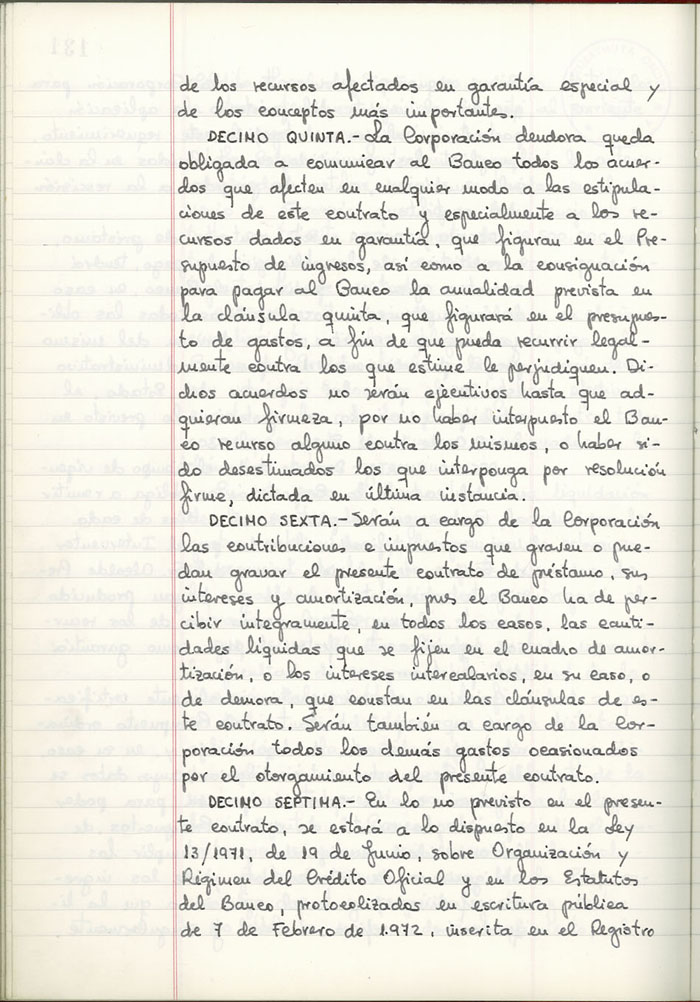 de los recursos afectados en garantía especial y
de los conceptos más importantes.
DECIMO QUINTA.- La Corporación deudora queda
obligada a comunicar al Banco todos los acuer-
dos que afecten en cualquier modo a las estipula-
ciones de este contrato y especialmente a los re-
cursos dados en garantía, que figuran en el Pre-
supuesto de ingresos, así como a la consignación
para pagar al Banco la anualidad prevista en
la cláusula quinta, que figurará en el presupues-
to de gastos, a fin de que pueda recurrir legal-
mente contra los que estime le perjudiquen. Di-
chos acuerdos no serán ejecutivos hasta que ad-
quieran firmeza, por no haber interpuesto el Ban-
co recurso alguno contra los mismos, o haber si-
do desestimados los que interponga por resolución
firme, dictada en última instancia.
DECIMO SEXTA.- Serán a cargo de la Corporación
las contribuciones e impuestos que graven o pue-
dan gravar el presente contrato de préstamo, sus
intereses y amortización, pues el Banco ha de per-
cibir íntegramente, en todos los casos, las canti-
dades líquidas que se fijen en el cuadro de amor-
tización, o los intereses intercalarios, en su caso, o
de demora, que constan en las cláusulas de es-
te contrato. Serán también a cargo de la Cor-
poración todos los demás gastos ocasionados
por el otorgamiento del presente contrato.
DECIMO SEPTIMA.- En lo no previsto en el presen-
te contrato, se estará a lo dispuesto en la Ley
13/1971, de 19 de Junio, sobre Organización y
Régimen del Crédito Oficial y en los Estatutos
del Banco, protocolizados en escritura pública
de 7 de Febrero de 1.972, inscrita en el Registro